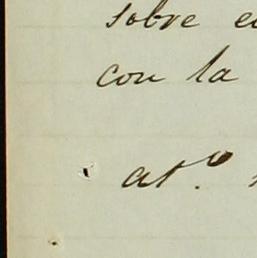 sobre
con la
at.º